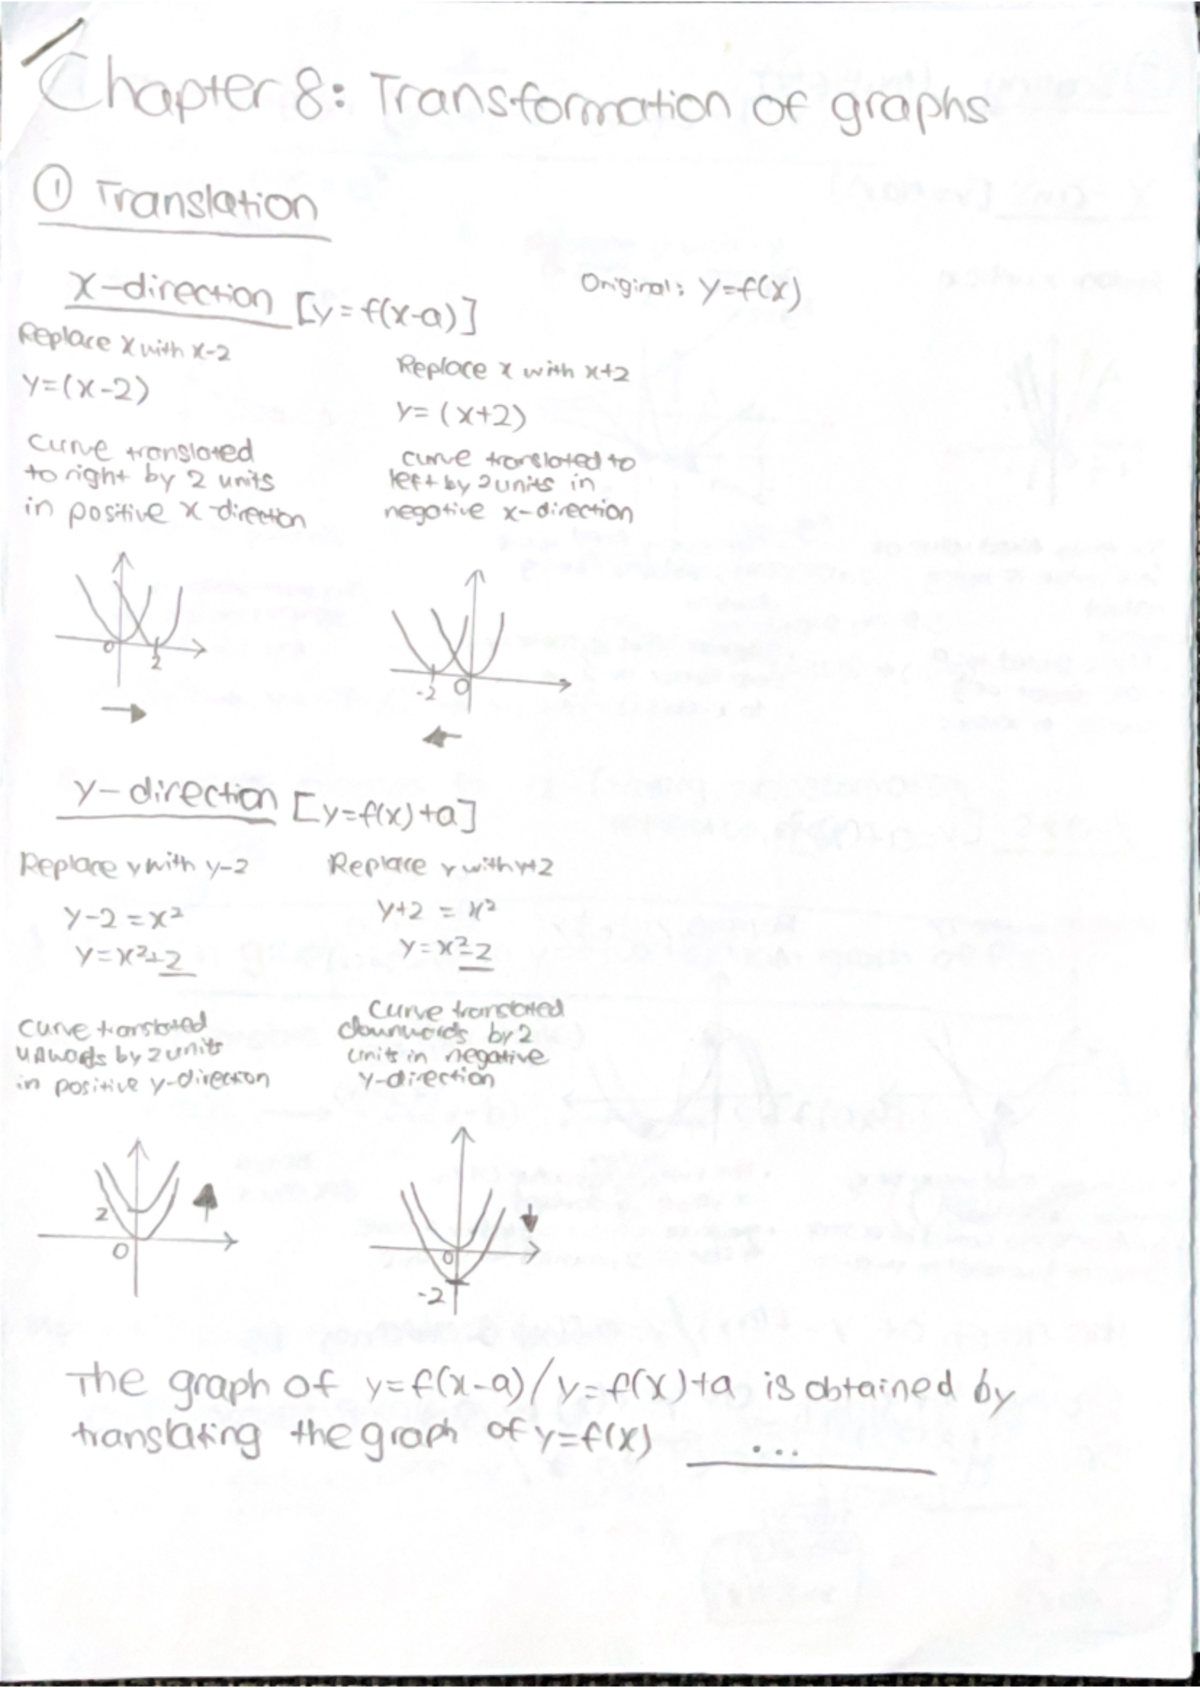 Chapter 8: Transformation of graphs
① Translation
x-direction [y=f(x-a)]
Original: y=f(x)
Replace x with x-2
y=(x-2)
Curve translated
to right by 2 units
in positive x-direction
Replace x with x+2
y=(x+2)
curve translated to
left by 2 units in
negative x-direction
0 2
-2 0
y-direction [y=f(x)+a]
Replace y with y-2
y-2=x²
y=x²+2
Curve translated
upwards by 2 units
in positive y-direction
Replace y with y+2
y+2 = x²
y=x²-2
Curve translated
downwards by 2
units in negative
y-direction
2
0
0
-2
The graph of y=f(x-a)/y=f(x)+a is obtained by
translating the graph of y=f(x) ...